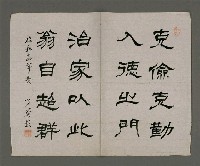 克儉克勤
入德之門
治家以此
翁自超群